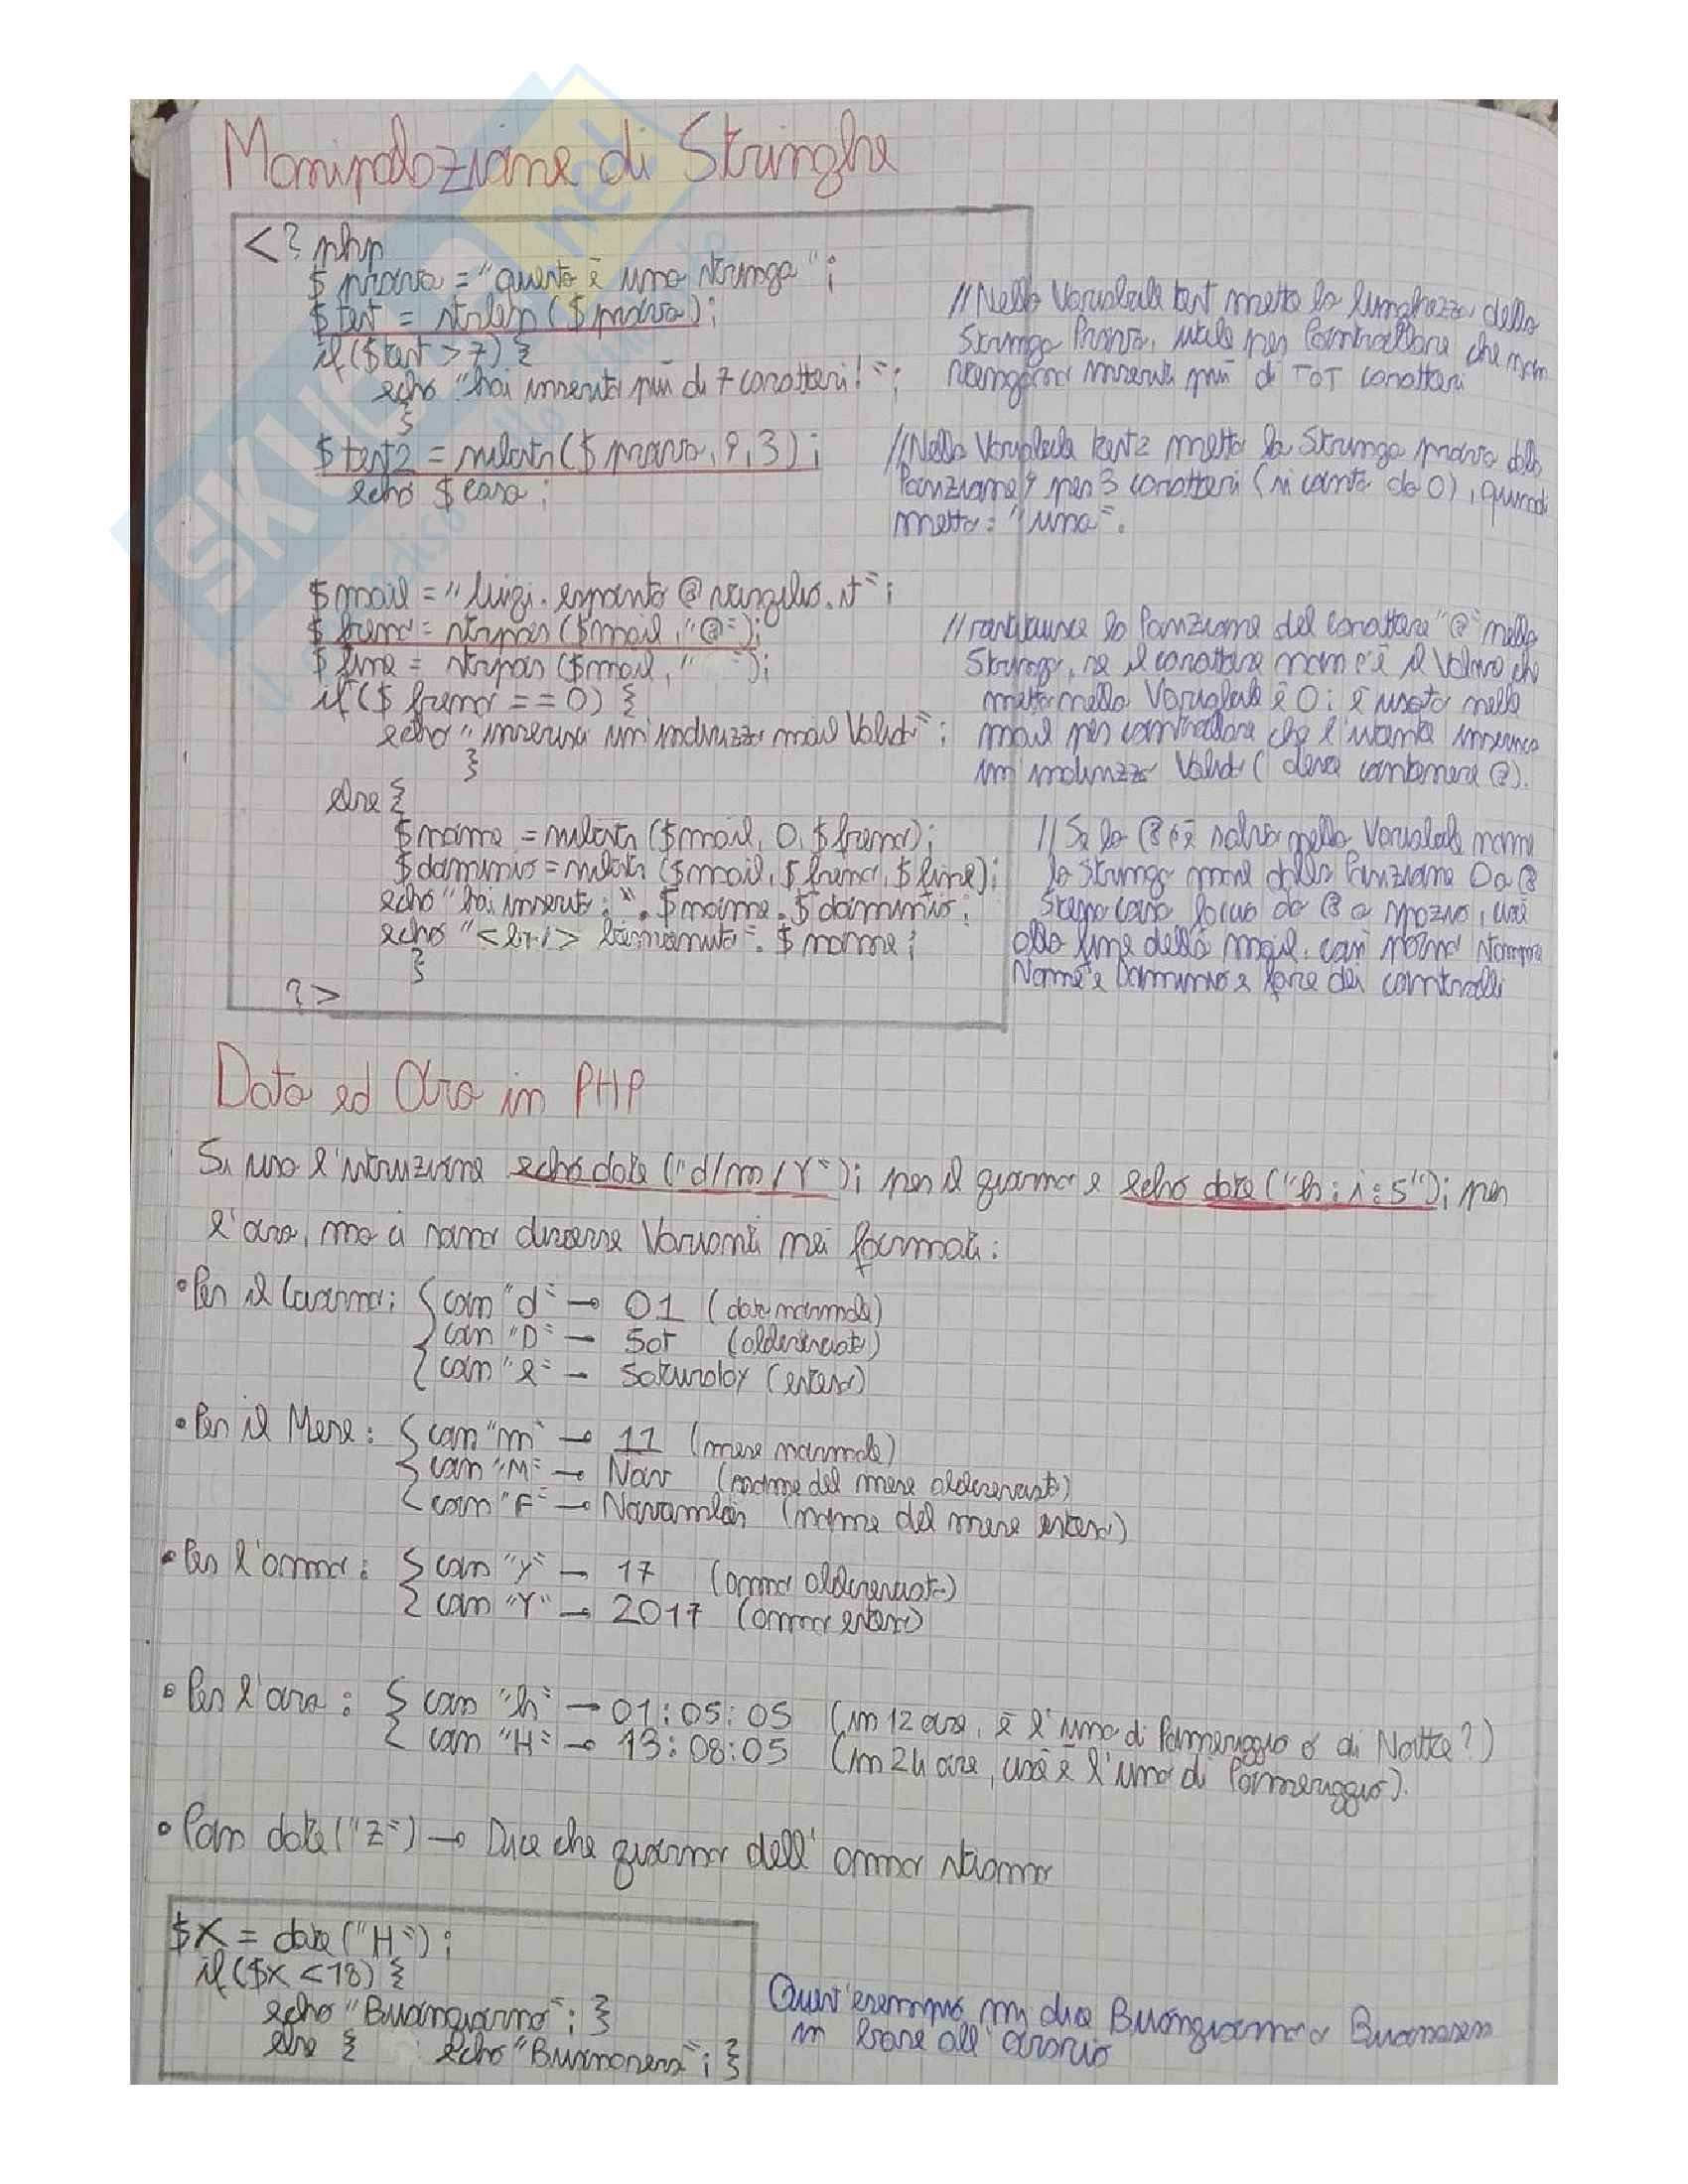 Manipolazione di Stringhe
<?php
$prova = "questa è una stringa";
$test = strlen($prova); //Nella Variabile test metto la lunghezza della
if($test > 7) { Stringa Prova, utile per Controllare che non
echo "hai inserito più di 7 caratteri!"; vengano inseriti più di TOT caratteri
}
$test2 = substr($prova, 9, 3); //Nella Variabile test2 metto la Stringa prova dalla
echo $cosa; Posizione 9 per 3 caratteri (si conta da 0), quindi
metto: "una".
$mail = "luigi.esposito@virgilio.it";
$fremo = strpos($mail, "@"); //restituisce la Posizione del carattere "@" nella
$fine = strpos($mail, " "); Stringa, se il carattere non c'è il Valore che
if($fremo == 0) { metto nella Variabile è 0; è usato nelle
echo "inserisci un indirizzo mail Valido"; mail per controllare che l'utente inserisca
} un indirizzo Valido (deve contenere @).
else {
$nome = substr($mail, 0, $fremo); //Se la @ c'è salvo nella Variabile nome
$dominio = substr($mail, $fremo, $fine); la Stringa mail dalla Posizione 0 a @
echo "hai inserito: ". $nome. $dominio; Stessa cosa faccio da @ a spazio, cioè
echo "<br/> benvenuto". $nome; alla fine della mail. così posso stampare
} Nome e Dominio e fare dei controlli
?>
Data ed Ora in PHP
Si usa l'istruzione echo date("d/m/Y"); per il giorno e echo date("h:i:s"); per
l'ora, ma ci sono diverse Varianti nei formati:
• Per il Giorno: { con "d" → 01 (data normale)
{ con "D" → Sat (abbreviato)
{ con "l" → Saturday (esteso)
• Per il Mese: { con "m" → 11 (mese normale)
{ con "M" → Nov (nome del mese abbreviato)
{ con "F" → November (nome del mese esteso)
• Per l'anno: { con "y" → 17 (anno abbreviato)
{ con "Y" → 2017 (anno esteso)
• Per l'ora: { con "h" → 01:05:05 (in 12 ore, è l'una di Pomeriggio o di Notte?)
{ con "H" → 13:08:05 (in 24 ore, cioè è l'una di Pomeriggio).
• Con date("z") → Dice che giorno dell'anno siamo
$X = date("H");
if($X < 18) {
echo "Buongiorno"; } Quest'esempio mi dice Buongiorno o Buonasera
else { echo "Buonasera"; } in base all'orario